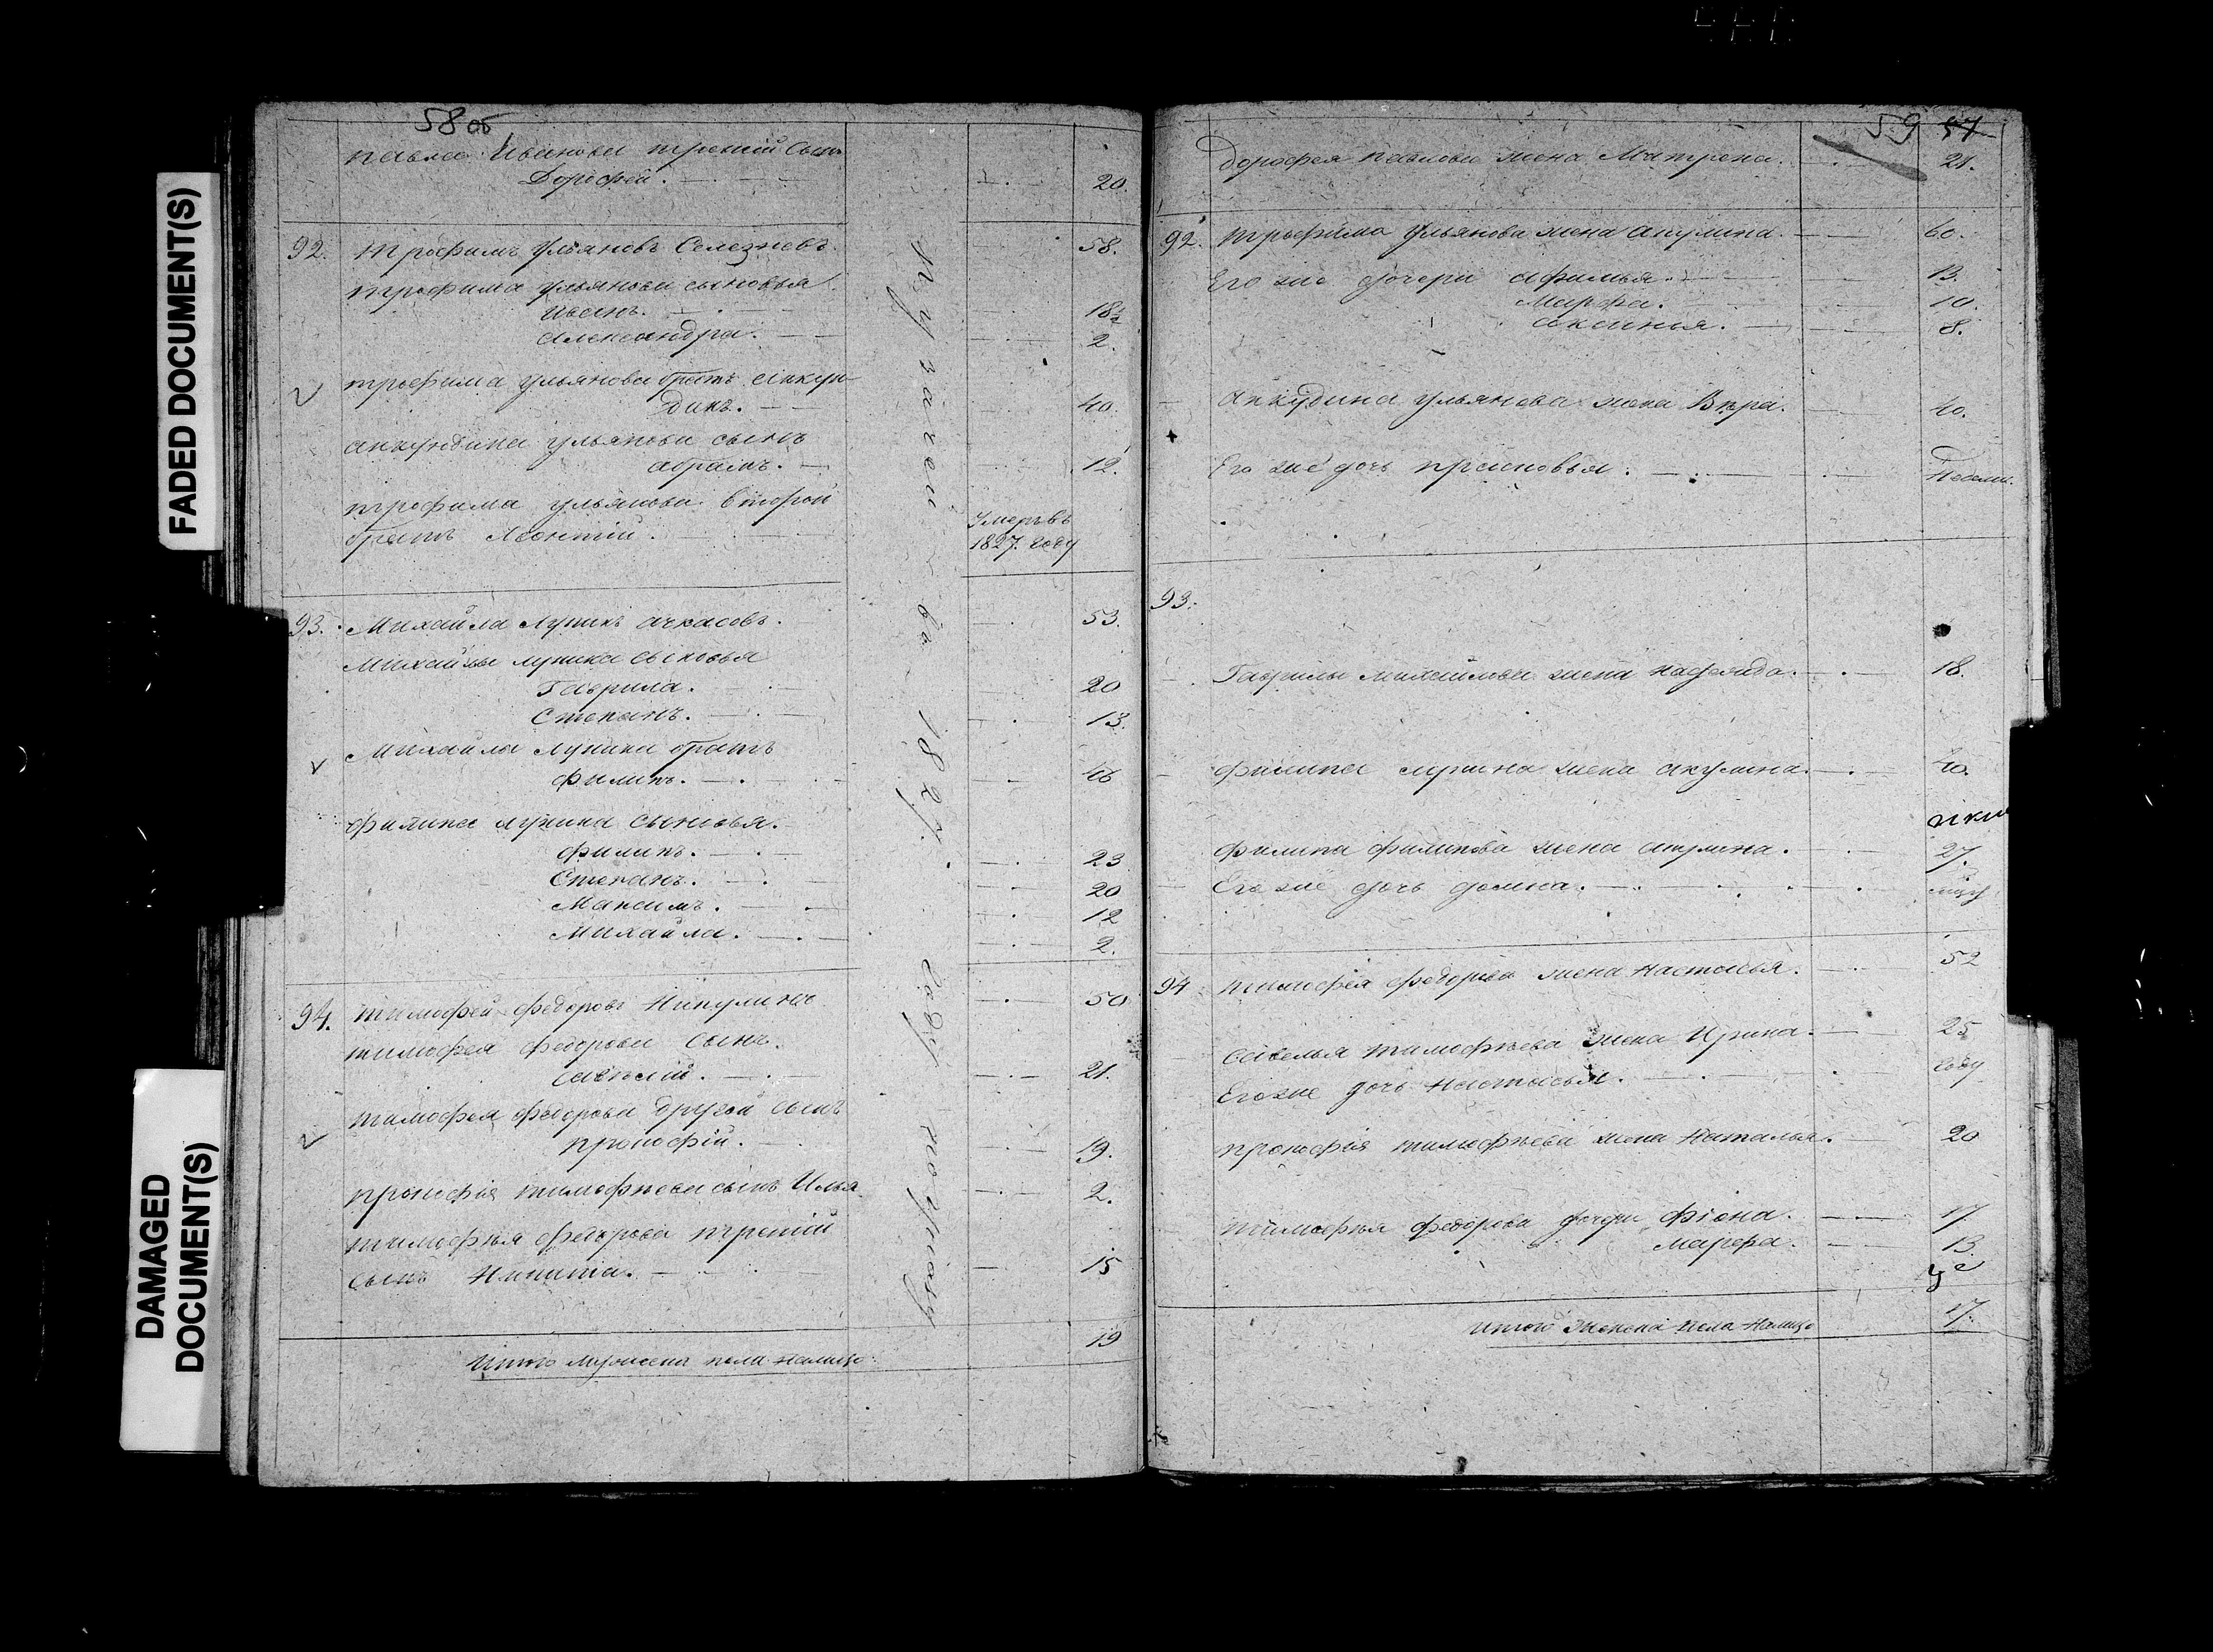 FADED DOCUMENT(S)
DAMAGED
DOCUMENT(S)
58об
Павла Иванова третий Сынъ
Дорофей. 20.
92. Трофимъ Ульяновъ Селезневъ. 58.
Трофима Ульянова сыновья
Иванъ. 18½
Александра. 2.
Трофима Ульянова братъ Анкун-
динъ. 40.
Анкундина Ульянова сынъ
Абрамъ. 12.
Трофима Ульянова второй
братъ Леонтий. Умеръ въ
1827. году
93. Михайла Лупинъ Ачкасовъ. 53.
Михайлы Лупина сыновья
Гаврила. 20
Степанъ. 13.
Михайлы Лупина братъ
Филипъ. 46
Филипа Лупина сыновья.
Филипъ. 23
Степанъ. 20
Максимъ. 12
Михайла. 2.
94. Тимофей Федоровъ Никулинъ 50
Тимофея Федорова сынъ.
Савѣлий. 21.
Тимофея Федорова другой сынъ
Прокофій. 19.
Прокофія Тимофѣева сынъ Илья. 2.
Тимофѣя Федорова третий
сынъ Никита. 15
Итого мужеска пола налицо. 19
въ 1827. году
59 57
Дорофея Павлова жена Матрена. 21.
92. Трофима Ульянова жена Акулина. 60.
Его же дочери Афимья. 13.
Марфа. 10.
Аксинья. 8.
Анкудина Ульянова жена Вѣра. 40.
Его же дочь Прасковья. Недели.
93.
Гаврилы Михайлова жена Надежда. 18.
Филипа Лупина жена Акулина. 40.
Филипа Филипова жена Акулина. 27.
Его же дочь Домна.
94 Тимофея Федорова жена Настасья. 52
Савелья Тимофѣева жена Ирина. 25
Его же дочь Настасья. году
Прокофія Тимофѣева жена Наталья. 20
Тимофѣя Федорова дочери Фіона. 17.
Марфа. 13.
Итого женска пола налицо 17.